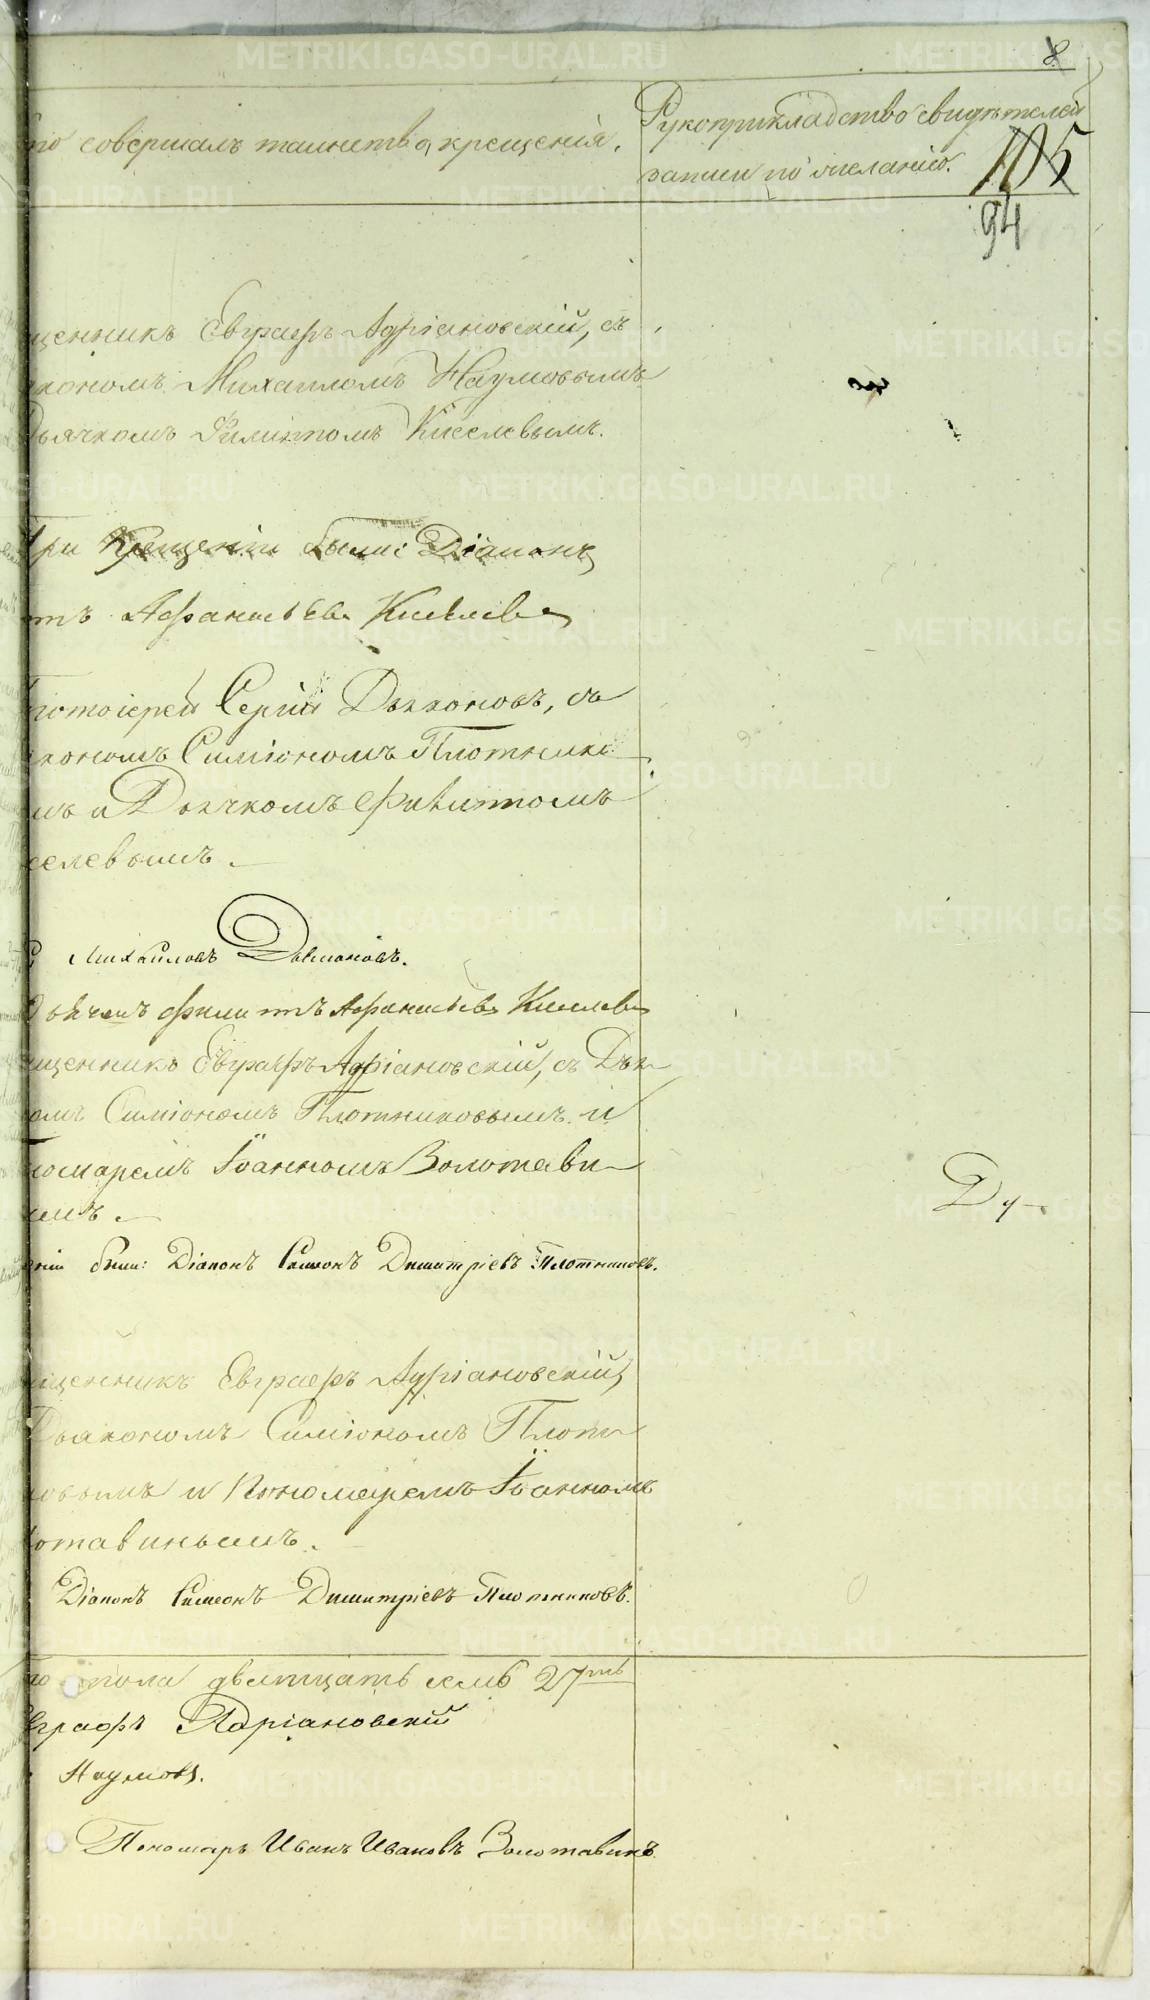 8
совершалъ таинство крещенія.
Рукоприкладство свидѣтелей
записи по желанію.
105
94
щенникъ Евграфъ Адріановскій, съ
кономъ Михаиломъ Наумовымъ
Дьячкомъ Филиппомъ Киселевымъ.
При крещеніи были: Діаконъ
тъ Афанасьевъ Киселевъ
тоіерей Сергій Дьяконовъ, съ
кономъ Симіономъ Плотнико
мъ и Дьячкомъ Филиппомъ
селевымъ.
Михаиловъ
Дьячекъ Филиппъ Афанасьевъ Киселевъ
щенникъ Евграфъ Адріановскій, съ Дья
омъ Симіономъ Плотниковымъ и
номаремъ Іоанномъ Золотави
ымъ.
ніи были: Діаконъ Симеонъ Димитріевъ Плотниковъ.
щенникъ Евграфъ Адріановскій,
Дьякономъ Симіономъ Плотн
ковымъ и Пономаремъ Іоанномъ
отавинымъ.
Діаконъ Симеонъ Димитріевъ Плотниковъ.
го пола двятцать семь 27мь
вграфъ Адріановскій
Наумовъ.
Пономарь Иванъ Ивановъ Золотавинъ
METRIKI.GASO-URAL.RU